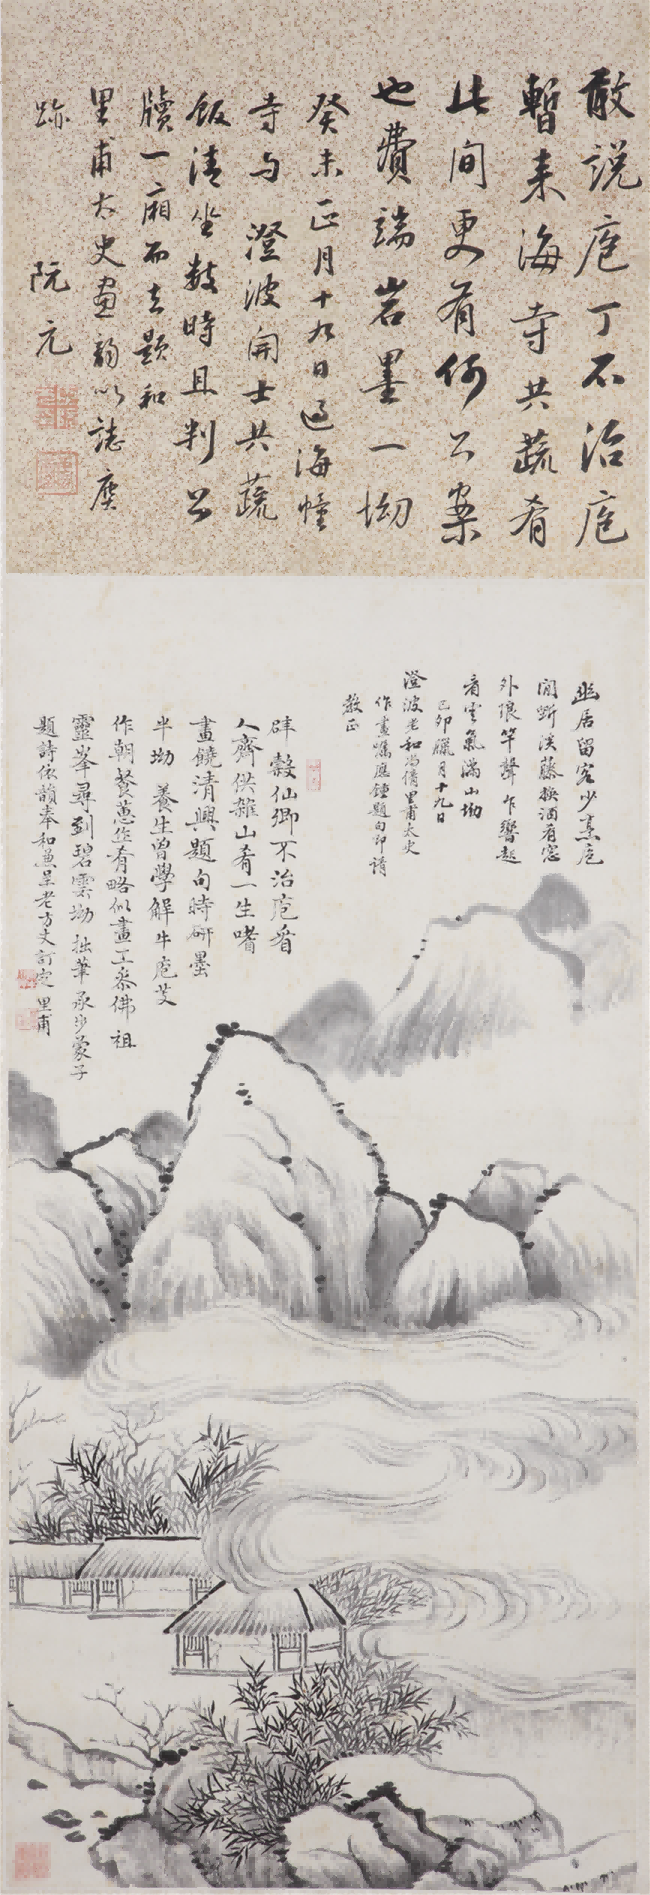 敢说庖丁不治庖
暫来海寺共蔬肴
此间更有何公案
也费端岩墨一坳
癸未正月十九日过海幢
寺与澄波开士共蔬
飯清坐数时且判公
牘一厢而去题和
里甫太史画韵以誌廋
跡 阮元
幽居留客少烹庖
闲斲溪藤换酒肴窓
外浪竿聲乍響起
看雲氣满山坳
己卯臘月十九日
澄波老和尚倩里甫太史
作畫嘱應鍾題句即请
教正
辟穀仙卿不治庖香
人齊供雜山肴一生嗜
畫饒清興題句時研墨
半坳 養生曾學解牛庖芝
作朝餐蕙作肴略似畫工参佛祖
靈峯尋到碧雲坳 拙筆承少蒙子
題詩依韻奉和兼呈老方丈訂定 里甫